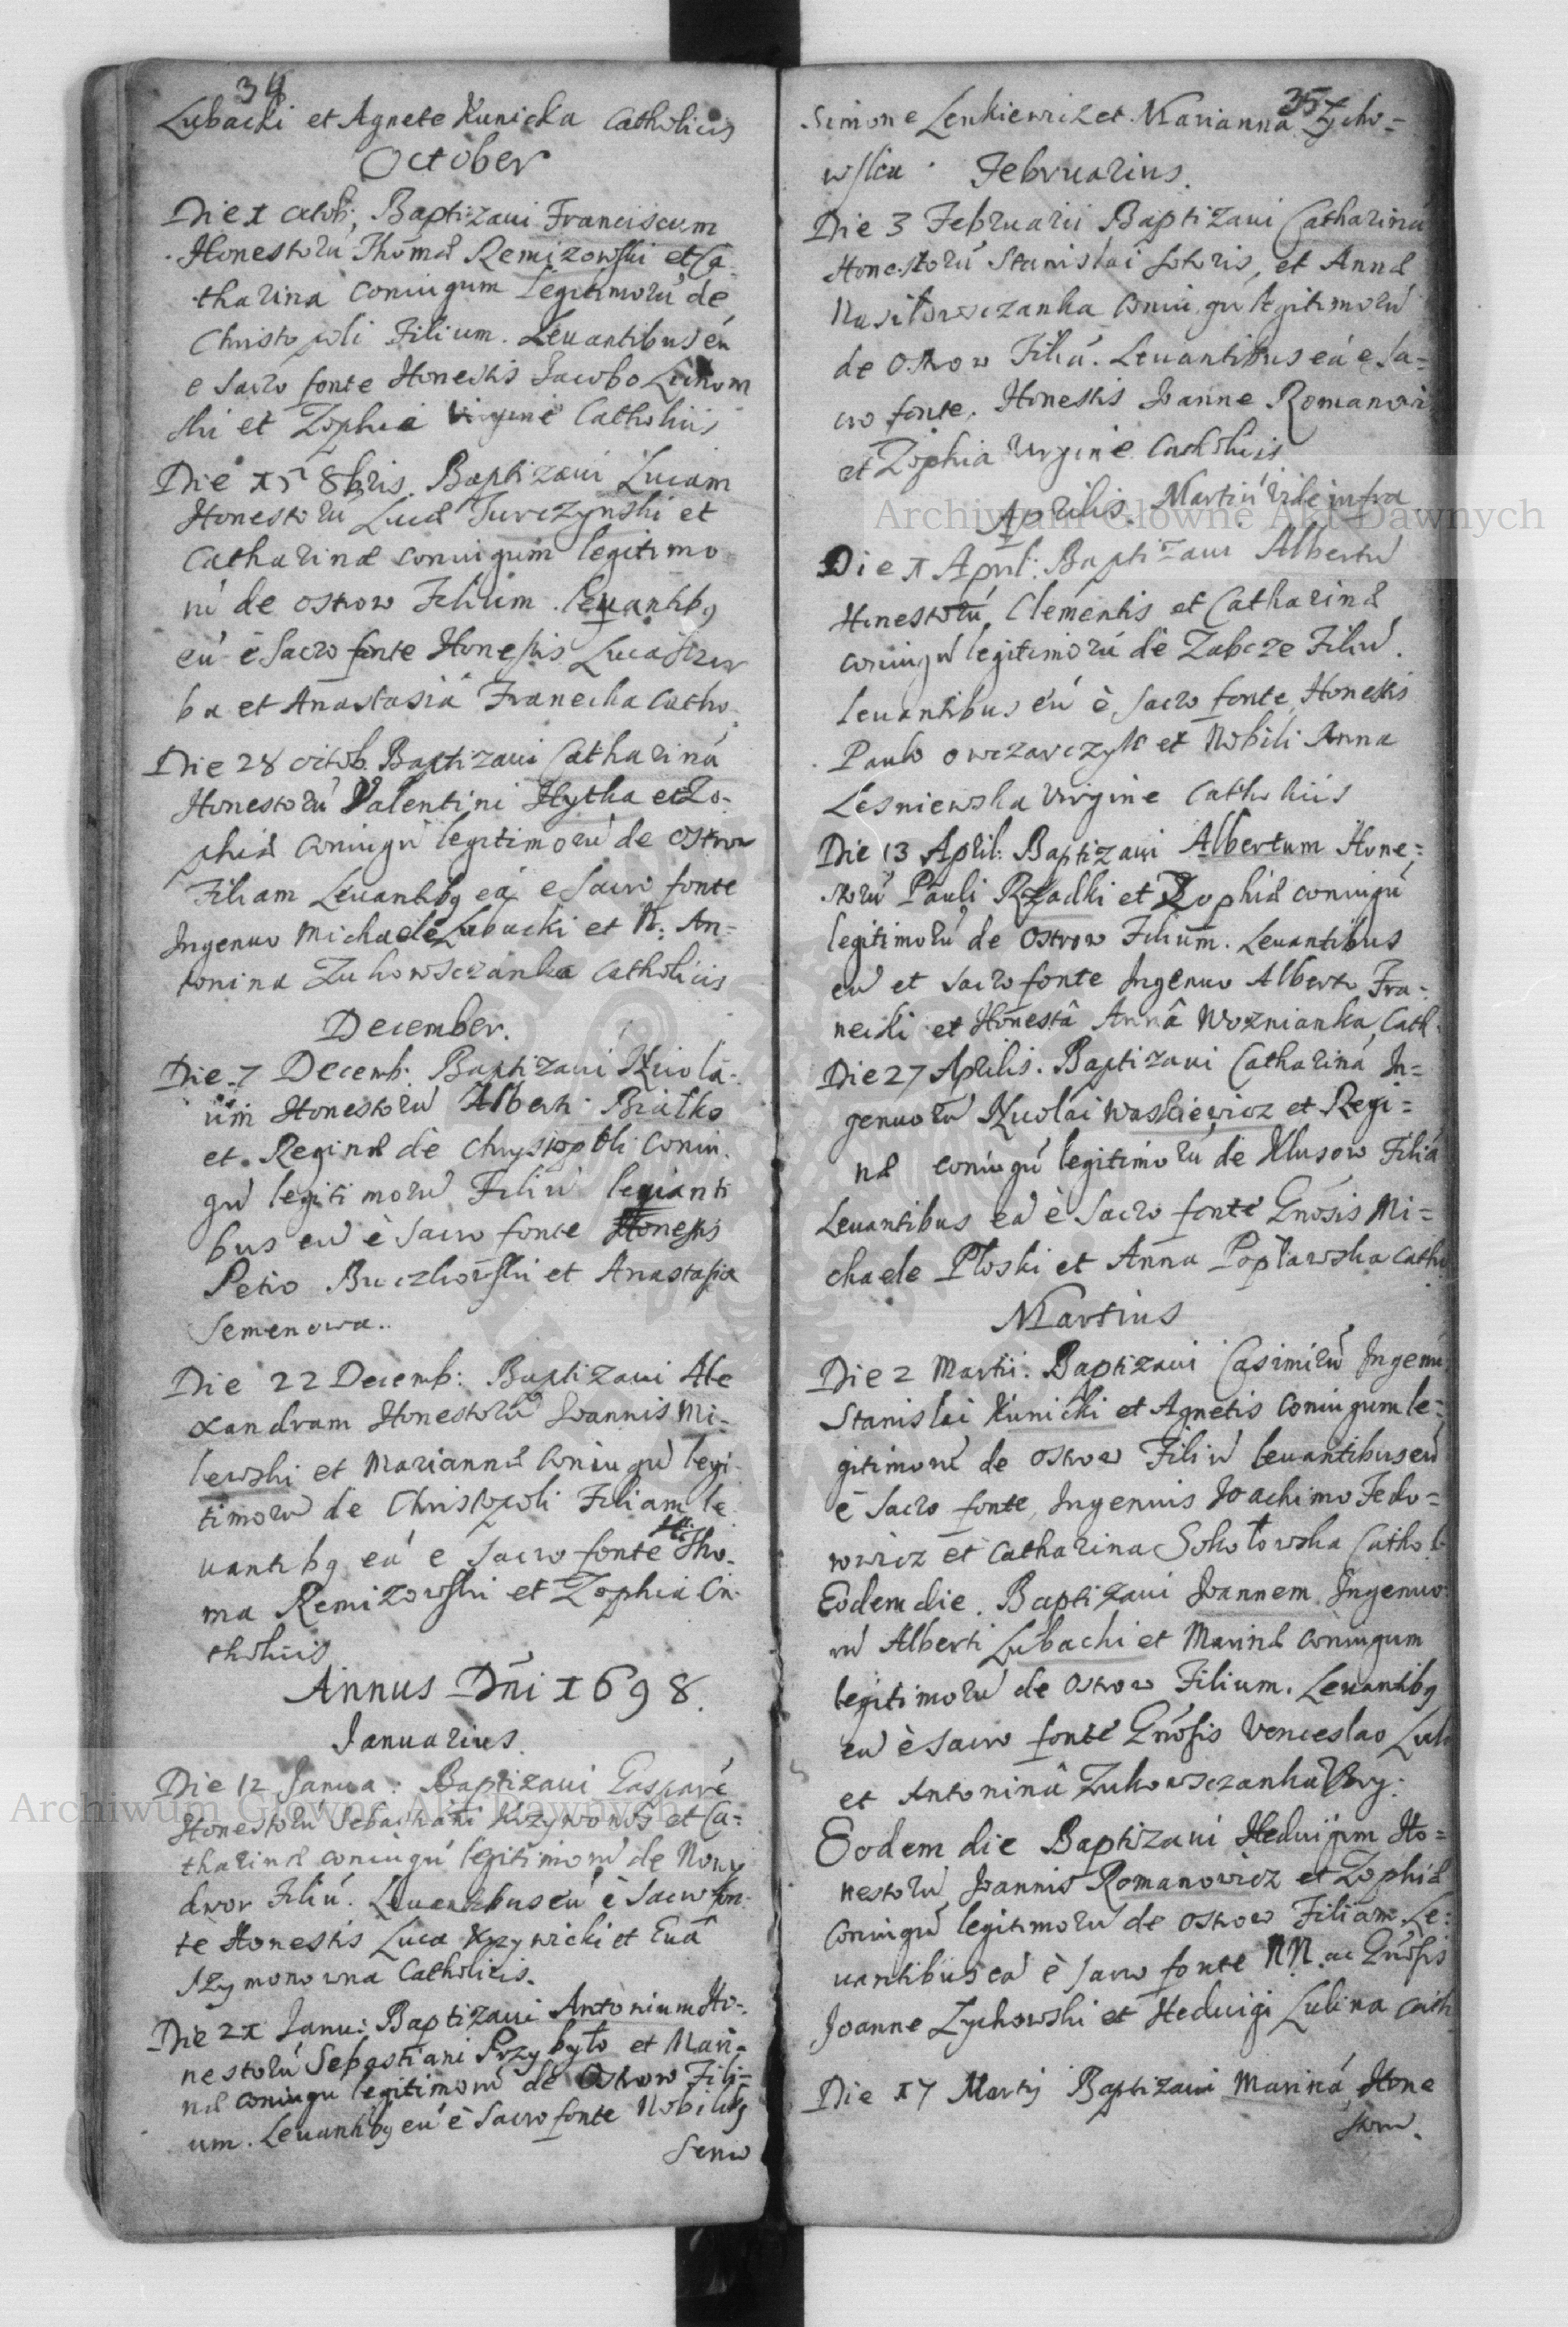 34
Lubacki et Agnete Kunicka Catholicis
October
Die 1 octob: Baptizaui Franciscum
Honestorū Thomæ Remizowski et Ca-
tharina coniugum legitimorū de
Christopoli Filium. Leuantibus eū
e Sacro fonte Honestis Iacobo
ski et Zophia Virgine Catholicis
Die 15 8bris Baptizaui Lucam
Honestorū Lucæ Turczynski et
Catharinæ coniugum legitimo
rū de Ostrow Filium. leuantibq
eū è Sacro fonte Honestis Luca
ba et Anastasia Franecka Catho
Die 28 octob. Baptizaui Catharinā
Honestorū Valentini Hytka et Zo-
phiæ coniugū legitimorū de Ostrow
Filiam Leuantibq eā e Sacro fonte
Ingenuo Michaele Lubacki et N. An-
tonina Zukowsczanka Catholicis
December.
Die 7 Decemb. Baptizaui Nicola-
um Honestorū Alberti Białko
et Reginæ de Chrystopoli coniu
gū legitimorū Filiū leuanti
bus eū è Sacro fonte Honestis
Petro Buczkowski et Anastasia
Semenowa..
Die 22 Decemb: Baptizaui Ale
xandram Honestorū Ioannis Mi-
lewski et Mariannæ Coniugū legi-
timorū de Christopoli Filiam le
uantibq eā e Sacro fonte Tho-
ma Remizowski et Zophia Ca-
tholicis
Annus Dñi 1698.
Ianuarius.
Die 12 Janua: Baptizaui Gasparē
Honestorū Sebastiani Krzywonos et Ca-
tharinæ coniugū legitimorū de Nowy
dwor Filiū. Leuantibus eū è Sacro fon-
te Honestis Luca Krzywicki et Euâ
Szymonowna Catholicis.
Die 21 Janu: Baptizaui Antonium Ho-
nestorū Sebastiani Przybyło et Mari-
næ coniugū legitimorū de Ostrow Fili=
um. Leuantibq eū è Sacro fonte Nobilibq
35
Simone Lenkiewicz et Marianna Zycho=
wska. Februarius.
Die 3 Februarii Baptizaui Catharinā
Honestorū Stanislai Sutoris, et Annæ
Wasilowczanka Coniugū legitimorū
de Ostrow Filiā. Leuantibus eā e Sa=
cro fonte. Honestis Ioanne Romanowi
et Zophia Virgine Catholicis
Aprilis. Martiū vide infra
Die 1 April: Baptizaui Albertū
Honestorū, Clementis et Catharinæ
coniugū legitimorū de Zabcze Filiū.
leuantibus eū è Sacro fonte, Honestis
Paulo owczarczyk et Nobili Anna
Lesniewska Virgine Catholicis
Die 13 April: Baptizaui Albertum Hone=
storū Pauli Rzadki et Zophiæ coniugū
legitimorū de Ostrow Filium. Leuantibus
eū et Sacro fonte Ingenuo Alberto Fra-
necki et Honestâ Annâ Woznianka, Cath.
Die 27 Aprilis. Baptizaui Catharinā In=
genuorū Nicolai Waskiewicz et Regi=
næ coniugū legitimorū de Klusow Filiā
Leuantibus eā è Sacro fonte Gnosis Mi=
chaele Płoski et Anna Popławska Catho
Martius
Die 2 Martii. Baptizaui Casimirū Ingenu
Stanislai Kunicki et Agnetis Coniugum le=
gitimorū de Ostrow Filiū leuantibus eū
è Sacro fonte, Ingenuis Joachimo Fedo=
rowicz et Catharina Sokołowska Cathol
Eodem die. Baptizaui Ioannem Ingenuo
rū Alberti Lubacki et Marinæ Coniugum
legitimorū de Ostrow Filium. Leuantibq
eū è Sacro fonte Gnosis Venceslao
et Antoninâ Zukowsczanka Virg.
Eodem die Baptizaui Heduigim Ho=
nestorū Ioannis Romanowicz et Zophiæ
Coniugū legitimorū de Ostrow Filiam. Le=
uantibus eā è Sacro fonte NN. ac Gnosis
Joanne Zychowski et Heduigi Lubina Cath
Die 17 Martij Baptizaui Marinā Hone
storū.
Archiwum Główne Akt Dawnych
Archiwum Główne Akt Dawnych